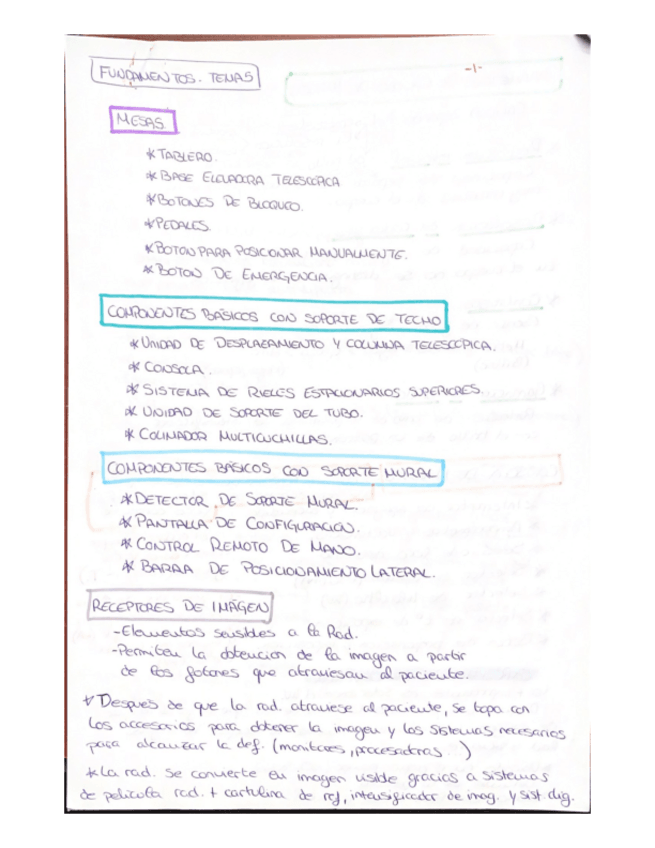 FUNDAMENTOS. TEMAS
-1-
MESAS
* TABLERO.
* BASE ELEVADORA TELESCOPICA
* BOTONES DE BLOQUEO.
* PEDALES.
* BOTON PARA POSICIONAR MANUALMENTE.
* BOTON DE EMERGENCIA.
COMPONENTES BÁSICOS CON SOPORTE DE TECHO
* UNIDAD DE DESPLAZAMIENTO Y COLUMNA TELESCÓPICA.
* CONSOLA.
* SISTEMA DE RIELES ESTACIONARIOS SUPERIORES.
* UNIDAD DE SOPORTE DEL TUBO.
* COLIMADOR MULTICUCHILLAS.
COMPONENTES BÁSICOS CON SOPORTE MURAL
* DETECTOR DE SOPORTE MURAL.
* PANTALLA DE CONFIGURACIÓN.
* CONTROL REMOTO DE MANO.
* BARRA DE POSICIONAMIENTO LATERAL.
RECEPTORES DE IMÁGEN
- Elementos sensibles a la Rad.
- Permiten la obtencion de la imagen a partir
de los fotones que atraviesan al paciente.
* Despues de que la rad. atraviese al paciente, se topa con
los accesorios para obtener la imagen y los sistemas necesarios
para alcanzar la def. (monitores, procesadoras...)
* La rad. se convierte en imagen visible gracias a sistemas
de pelicula rad. + cartulina de ref, intensificador de imag. y sist. dig.